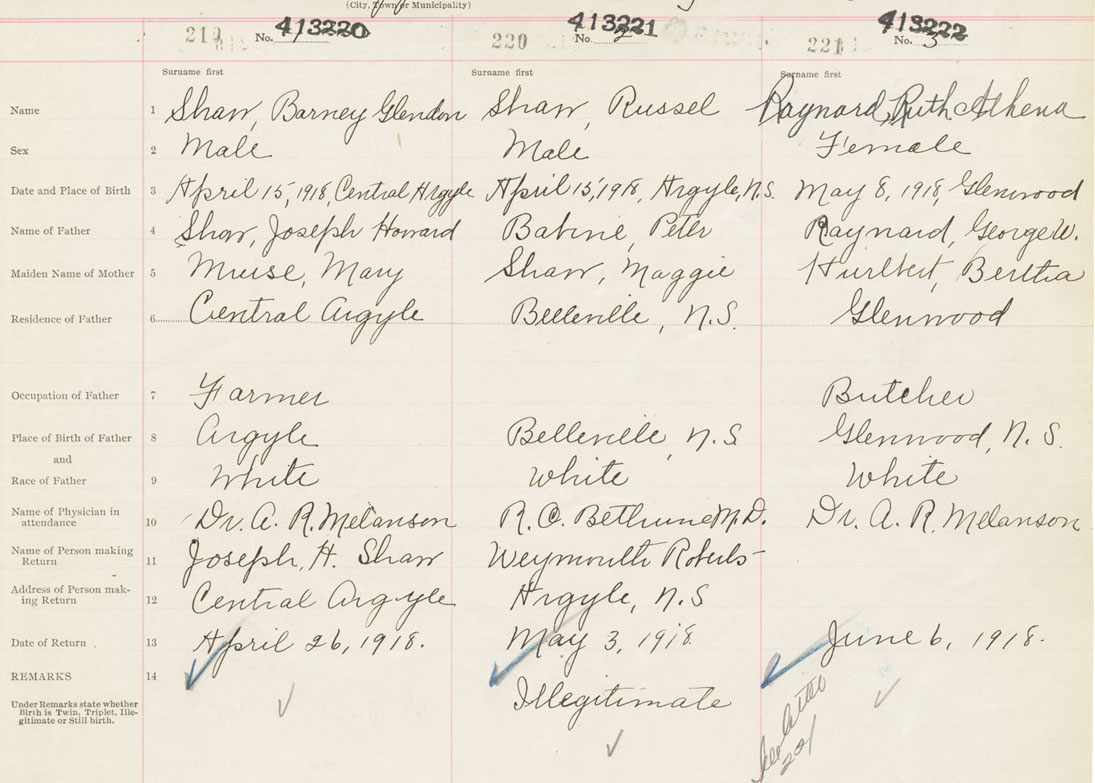 (City, Town or Municipality)
219 No. 1 413220 220 No. 2 413221 221 No. 3 413222
Surname first Surname first Surname first
Name 1 Shaw, Barney Glendon Shaw, Russel Raynard, Ruth Athena
Sex 2 Male Male Female
Date and Place of Birth 3 April 15, 1918, Central Argyle April 15, 1918, Argyle, N.S. May 8, 1918, Glenwood
Name of Father 4 Shaw, Joseph Howard Babine, Peter Raynard, George W.
Maiden Name of Mother 5 Muise, Mary Shaw, Maggie Hurlbert, Bertha
Residence of Father 6 Central Argyle Belleville, N.S. Glenwood
Occupation of Father 7 Farmer Butcher
Place of Birth of Father 8 Argyle Belleville, N.S Glenwood, N.S.
and
Race of Father 9 White White White
Name of Physician in
attendance 10 Dr. A. R. Melanson R. O. Bethune M.D. Dr. A. R. Melanson
Name of Person making
Return 11 Joseph. H. Shaw Weymouth Roberts
Address of Person mak-
ing Return 12 Central Argyle Argyle, N.S
Date of Return 13 April 26, 1918. May 3, 1918 June 6, 1918.
REMARKS 14
Under Remarks state whether
Birth is Twin, Triplet, Ille-
gitimate or Still birth.
Illegitimate
221